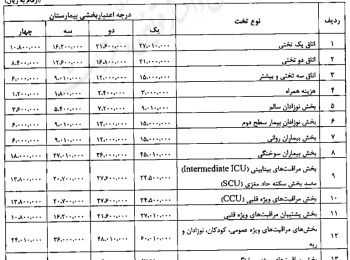 (ارقام به ریال)
ردیف نوع تخت درجه اعتباربخشی بیمارستان
یک دو سه چهار
۱ اتاق یک تختی ۲۷،۰۱۰،۰۰۰ ۲۱،۶۰۰،۰۰۰ ۱۶،۲۰۰،۰۰۰ ۱۰،۸۰۰،۰۰۰
۲ اتاق دو تختی ۲۱،۰۰۰،۰۰۰ ۱۶،۸۰۰،۰۰۰ ۱۲،۶۰۰،۰۰۰ ۸،۴۰۰،۰۰۰
۳ اتاق سه تختی و بیشتر ۱۵،۰۰۰،۰۰۰ ۱۲،۰۰۰،۰۰۰ ۹،۰۱۰،۰۰۰ ۶،۰۰۰،۰۰۰
۴ هزینه همراه ۳،۰۰۰،۰۰۰ ۲،۴۰۰،۰۰۰ ۱،۸۰۰،۰۰۰ ۱،۲۰۰،۰۰۰
۵ بخش نوزادان سالم ۹،۰۱۰،۰۰۰ ۷،۲۰۰،۰۰۰ ۵،۴۰۰،۰۰۰ ۳،۶۰۰،۰۰۰
۶ بخش نوزادان بیمار سطح دوم ۱۵،۰۰۰،۰۰۰ ۱۲،۰۰۰،۰۰۰ ۹،۰۱۰،۰۰۰ ۶،۰۰۰،۰۰۰
۷ بخش بیماران روانی ۱۵،۰۰۰،۰۰۰ ۱۲،۰۰۰،۰۰۰ ۹،۰۱۰،۰۰۰ ۶،۰۰۰،۰۰۰
۸ بخش بیماران سوختگی ۴۵،۰۱۰،۰۰۰ ۳۶،۰۰۰،۰۰۰ ۲۷،۰۱۰،۰۰۰ ۱۸،۰۰۰،۰۰۰
۹ بخش مراقبت‌های بینابینی (Intermediate ICU)
مانند بخش سکته حاد مغزی (SCU) ۳۴،۵۰۰،۰۰۰ ۲۷،۶۰۰،۰۰۰ ۲۰،۷۰۰،۰۰۰ ۱۳،۸۰۰،۰۰۰
۱۰ بخش مراقبت‌های ویژه قلبی (CCU) ۳۴،۵۰۰،۰۰۰ ۲۷،۶۰۰،۰۰۰ ۲۰،۷۰۰،۰۰۰ ۱۳،۸۰۰،۰۰۰
۱۱ بخش پشتیبان مراقبت‌های ویژه قلبی ۲۷،۰۱۰،۰۰۰ ۲۱،۶۰۰،۰۰۰ ۱۶،۲۰۰،۰۰۰ ۱۰،۸۰۰،۰۰۰
۱۲ بخش‌های مراقبت‌های ویژه عمومی، کودکان، نوزادان و
ریه ۶۰،۰۱۰،۰۰۰ ۴۸،۰۱۰،۰۰۰ ۳۶،۰۰۰،۰۰۰ ۲۴،۰۱۰،۰۰۰